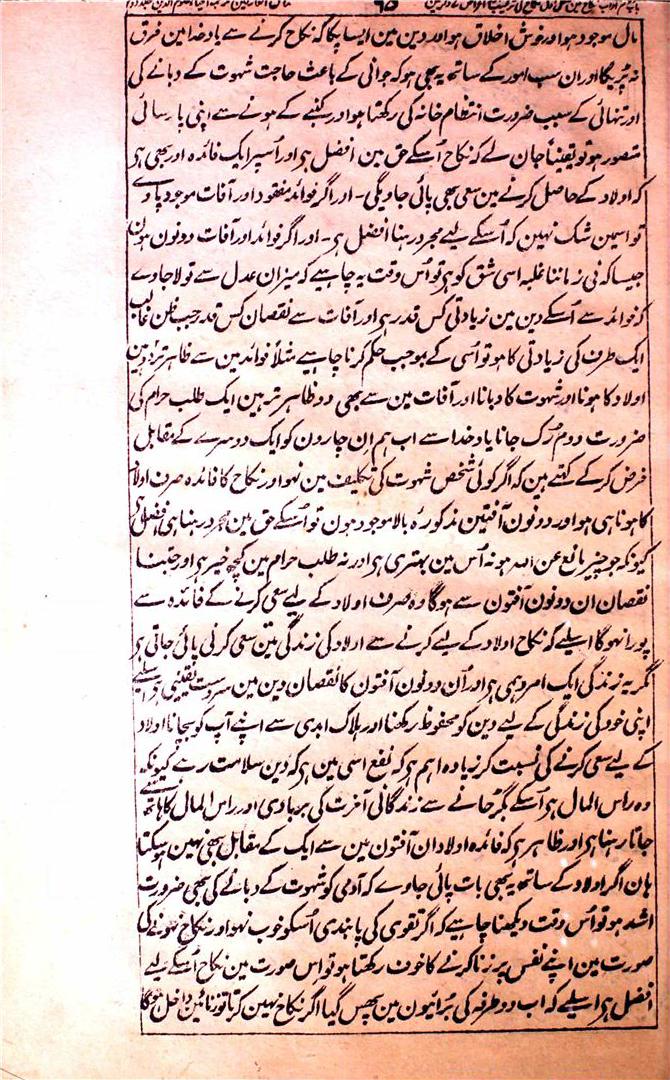 مال موجود ہو اور خوش اخلاق ہو اور دین مین ایسا پکا کہ نکاح کرنے سے یاد خدا مین فرق
نہ پڑیگا اور ان سب امور کے ساتھ یہ بھی ہو کہ جوانی کے باعث حاجت شہوت کے دبانے کی
اور تنہائی کے سبب ضرورت انتظام خانہ کی رکھتا ہو اور کنبے کے ہونے سے اپنی پارسائی
متصور ہو تو یقیناً جان لے کہ نکاح اُسکے حق مین افضل ہی اور اُسپر ایک فائدہ اور بھی ہی
کہ اولاد کے حاصل کرنے مین سعی بھی پائی جاویگی۔ اور اگر فوائد مفقود اور آفات موجود پاوے
تو اسمین شک نہین کہ اُسکے لیے مجرد رہنا افضل ہی۔ اور اگر فوائد اور آفات دونون ہون
جیسا کہ فی زماننا غلبہ اسی شق کو ہی تو اُس وقت یہ چاہیے کہ میزان عدل سے تولا جاوے
کہ فوائد سے اُسکے دین مین زیادتی کس قدر ہی اور آفات سے نقصان کس قدر جب ظن غالب
ایک طرف کی زیادتی کا ہو تو اُسی کے بموجب حکم کرنا چاہیے مثلاً فوائد مین سے ظاہر تر دو ہین
اولاد کا ہونا اور شہوت کا دبانا اور آفات مین سے بھی دو ظاہر تر ہین ایک طلب حرام کی
ضرورت دوم رُک جانا یاد خدا سے اب ہم ان چارون کو ایک دوسرے کے مقابل
فرض کرکے کہتے ہین کہ اگر کوئی شخص شہوت کی تکلیف مین نہو اور نکاح کا فائدہ صرف اولاد
کا ہونا ہی ہو اور دونون آفتین مذکورہ بالا موجود ہون تو اُسکے حق مین مجرد رہنا ہی افضل ہی
کیونکہ جو چیز مانع عن اللہ ہو نہ اُس مین بہتری ہی اور نہ طلب حرام مین کچھ خیر ہی اور جتنا
نقصان ان دونون آفتون سے ہوگا وہ صرف اولاد کے لیے سعی کرنے کے فائدہ سے
پورا نہوگا اسلیے کہ نکاح اولاد کے لیے کرنے سے اولاد کی زندگی مین سعی کرنی پائی جاتی ہی
مگر یہ زندگی ایک امر وہمی ہی اور اُن دونون آفتون کا نقصان دین مین سردست یقینی ہی اسلیے
اپنی خود کی زندگی کے لیے دین کو محفوظ رکھنا اور ہلاک ابدی سے اپنے آپ کو بچانا اولاد
کے لیے سعی کرنے کی نسبت کر زیادہ اہم ہی کہ نفع اسی مین ہی کہ دین سلامت رہے کیونکہ
وہ راس المال ہی اُسکے بگڑ جانے سے زندگانی آخرت کی بربادی اور راس المال کا ہاتھ سے
جاتا رہنا ہی اور ظاہر ہی کہ فائدہ اولاد ان آفتون مین سے ایک کے مقابل بھی نہین ہو سکتا
ہان اگر اولاد کے ساتھ یہ بھی بات پائی جاوے کہ آدمی کو شہوت کے دبانے کی بھی ضرورت
اشد ہو تو اُس وقت دیکھنا چاہیے کہ اگر تقوی کی پابندی اُسکو خوب نہو اور نکاح نہونے کی
صورت مین اپنے نفس پر زنا کرنے کا خوف رکھتا ہو تو اس صورت مین نکاح اُسکے لیے
افضل ہی اسلیے کہ اب دو طرفہ کی بُرائیون مین پھنس گیا اگر نکاح نہین کرتا تو زنا مین داخل ہوگا